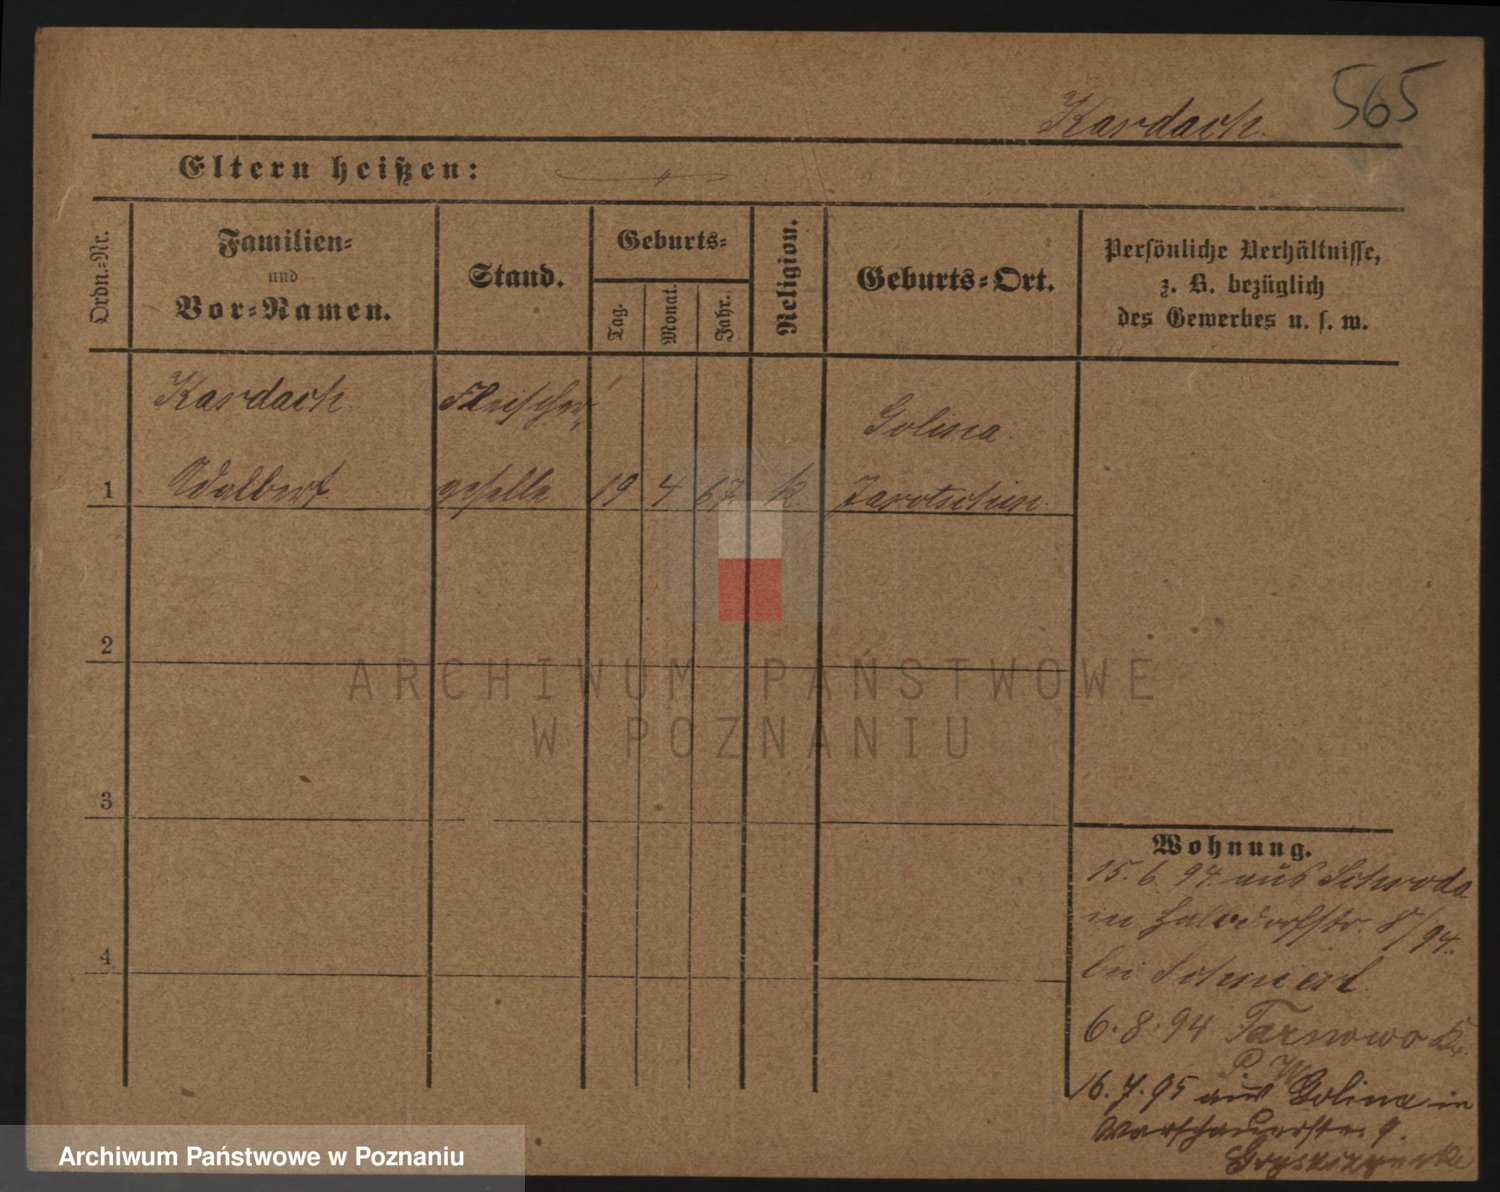 565
Kardach.
Eltern heißen:
Ordn.-Nr.
Familien-
und
Vor-Namen.
Stand.
Geburts-
Tag.
Monat.
Jahr.
Religion.
Geburts-Ort.
Persönliche Verhältnisse,
z. B. bezüglich
des Gewerbes u. s. w.
Kardach
Fleischer
Golina
1
Adalbert
geselle
19
4
67
k
Jarotschin.
2
3
4
Wohnung.
15. 6. 94. aus Schroda
in Halbdorfstr. 8/94.
bei
6. 8. 94 Tarnowo Kr.
P. W
16. 7. 95 aus Golina in
Warschauerstr. 9.
ARCHIWUM PAŃSTWOWE
W POZNANIU
Archiwum Państwowe w Poznaniu